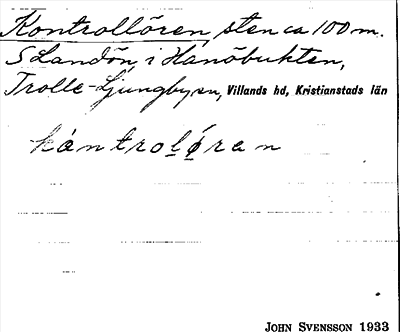 Kontrollören, sten ca 100 m.
S Landön, i Hanöbukten,
Trolle-Ljungby sn, Villands hd, Kristianstads län
kántroløran
JOHN SVENSSON 1933